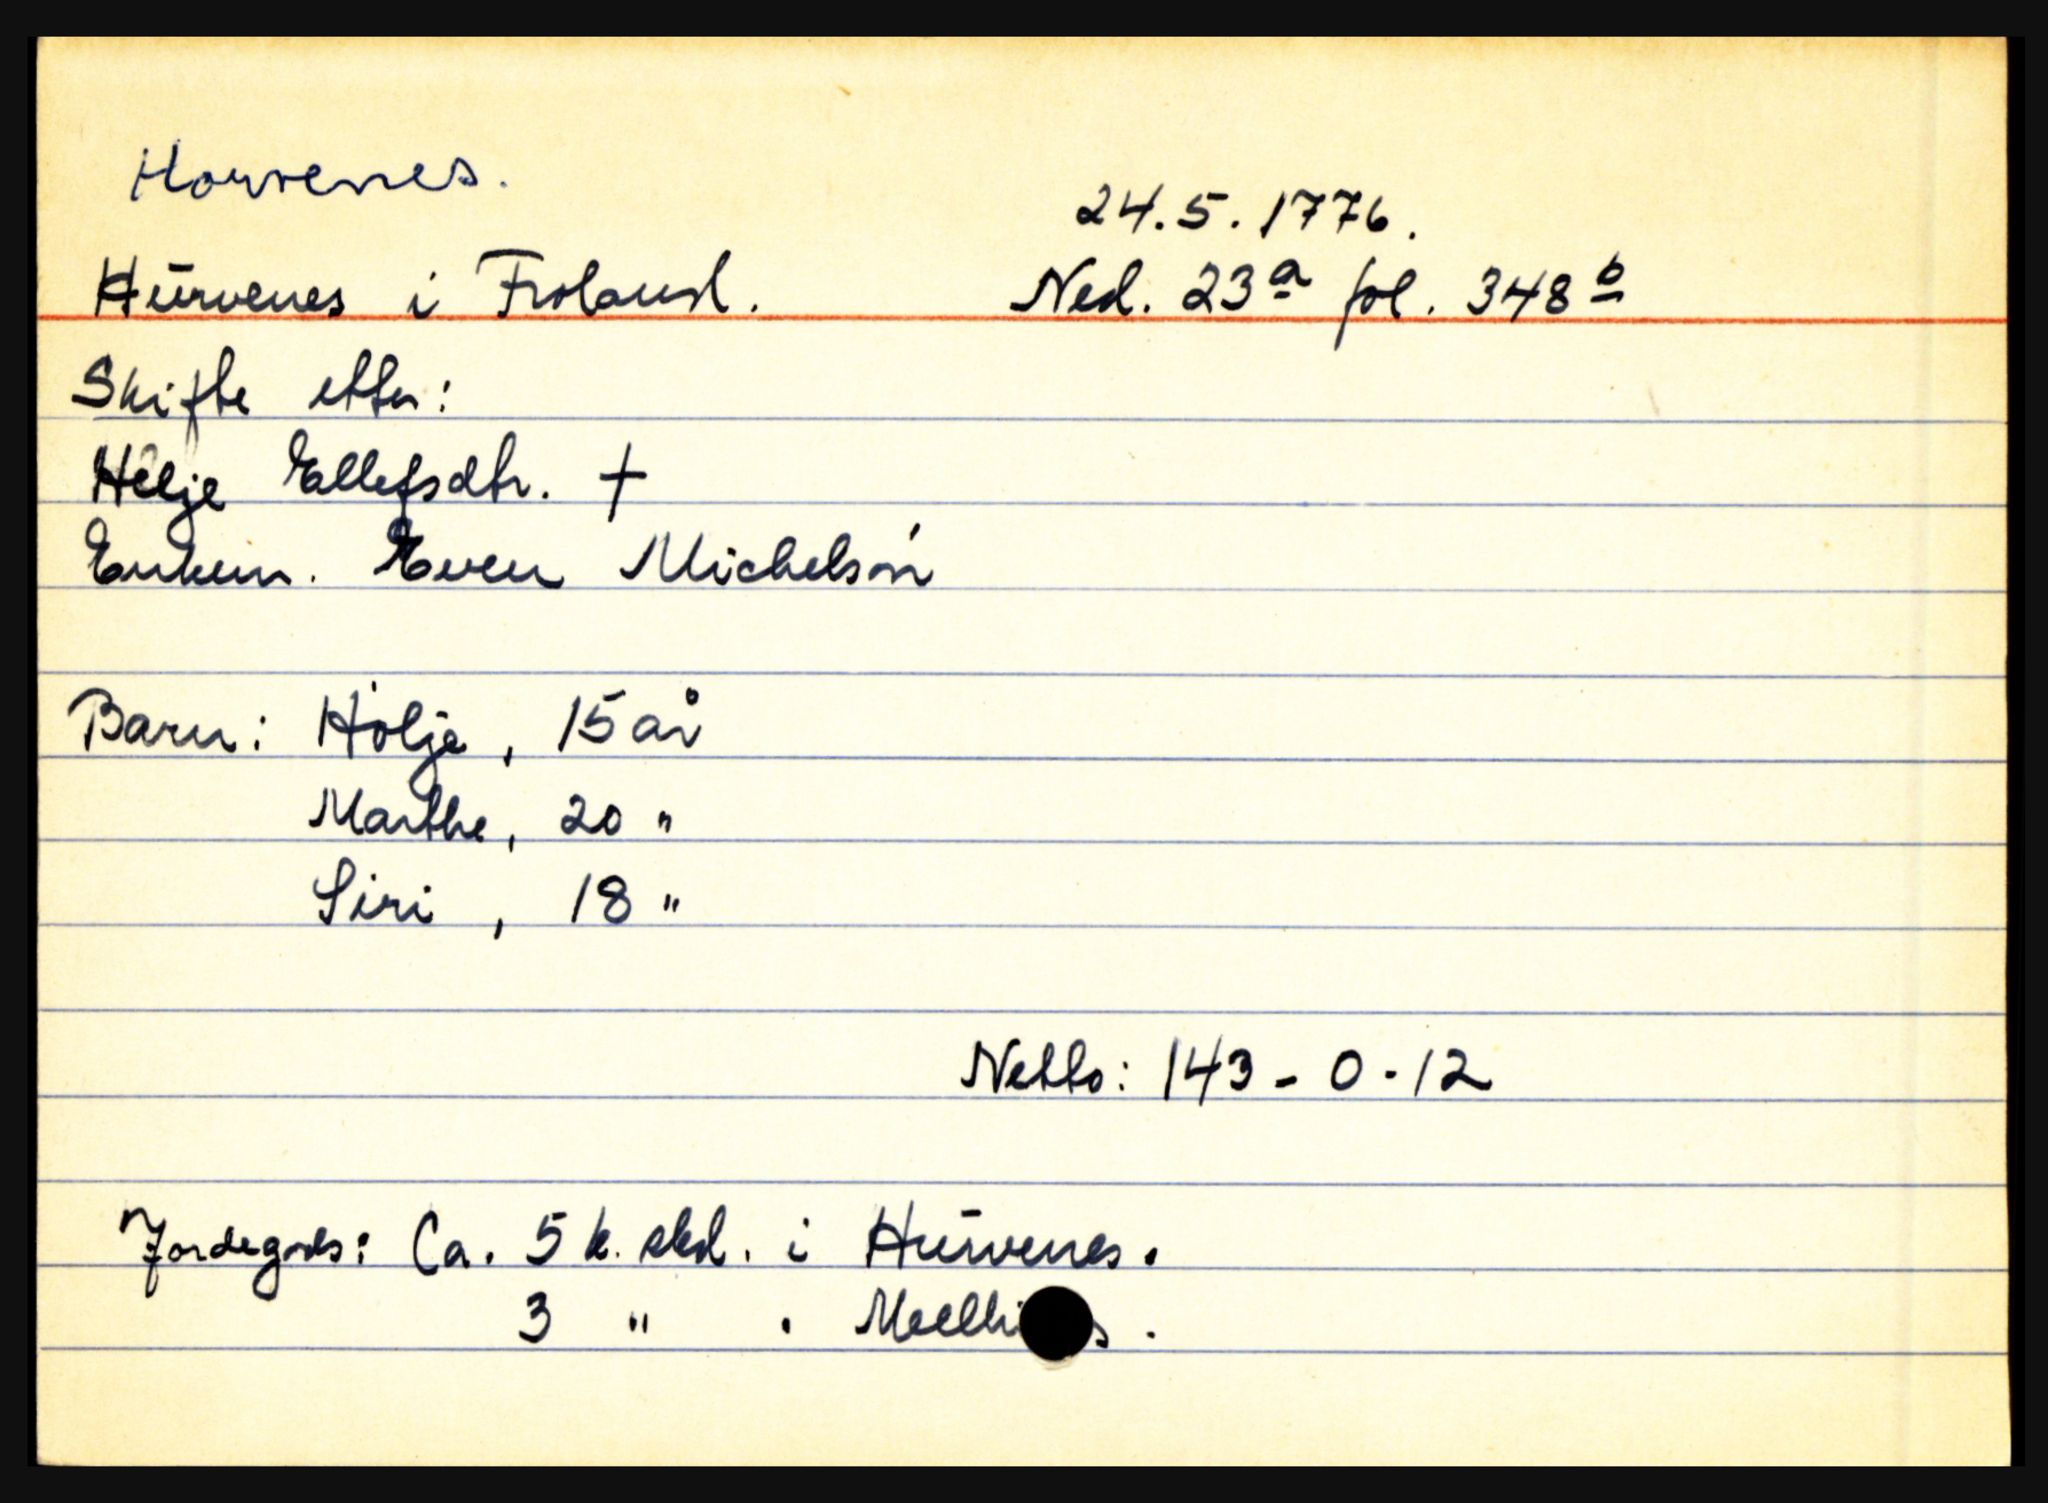 Hovrenes.
24.5.1776.
Hūrvenes i Froland. Ned. 23a fol. 348b
Skifte etter:
Helje Ellefsdtr. †
Enkem. Even Michelsøn
Barn: Holje, 15 år
Marthe, 20 "
Siri, 18 "
Netto: 143 - 0 - 12
Jordegods: Ca. 5 k. skd. i Hūrvenes.
3 " .